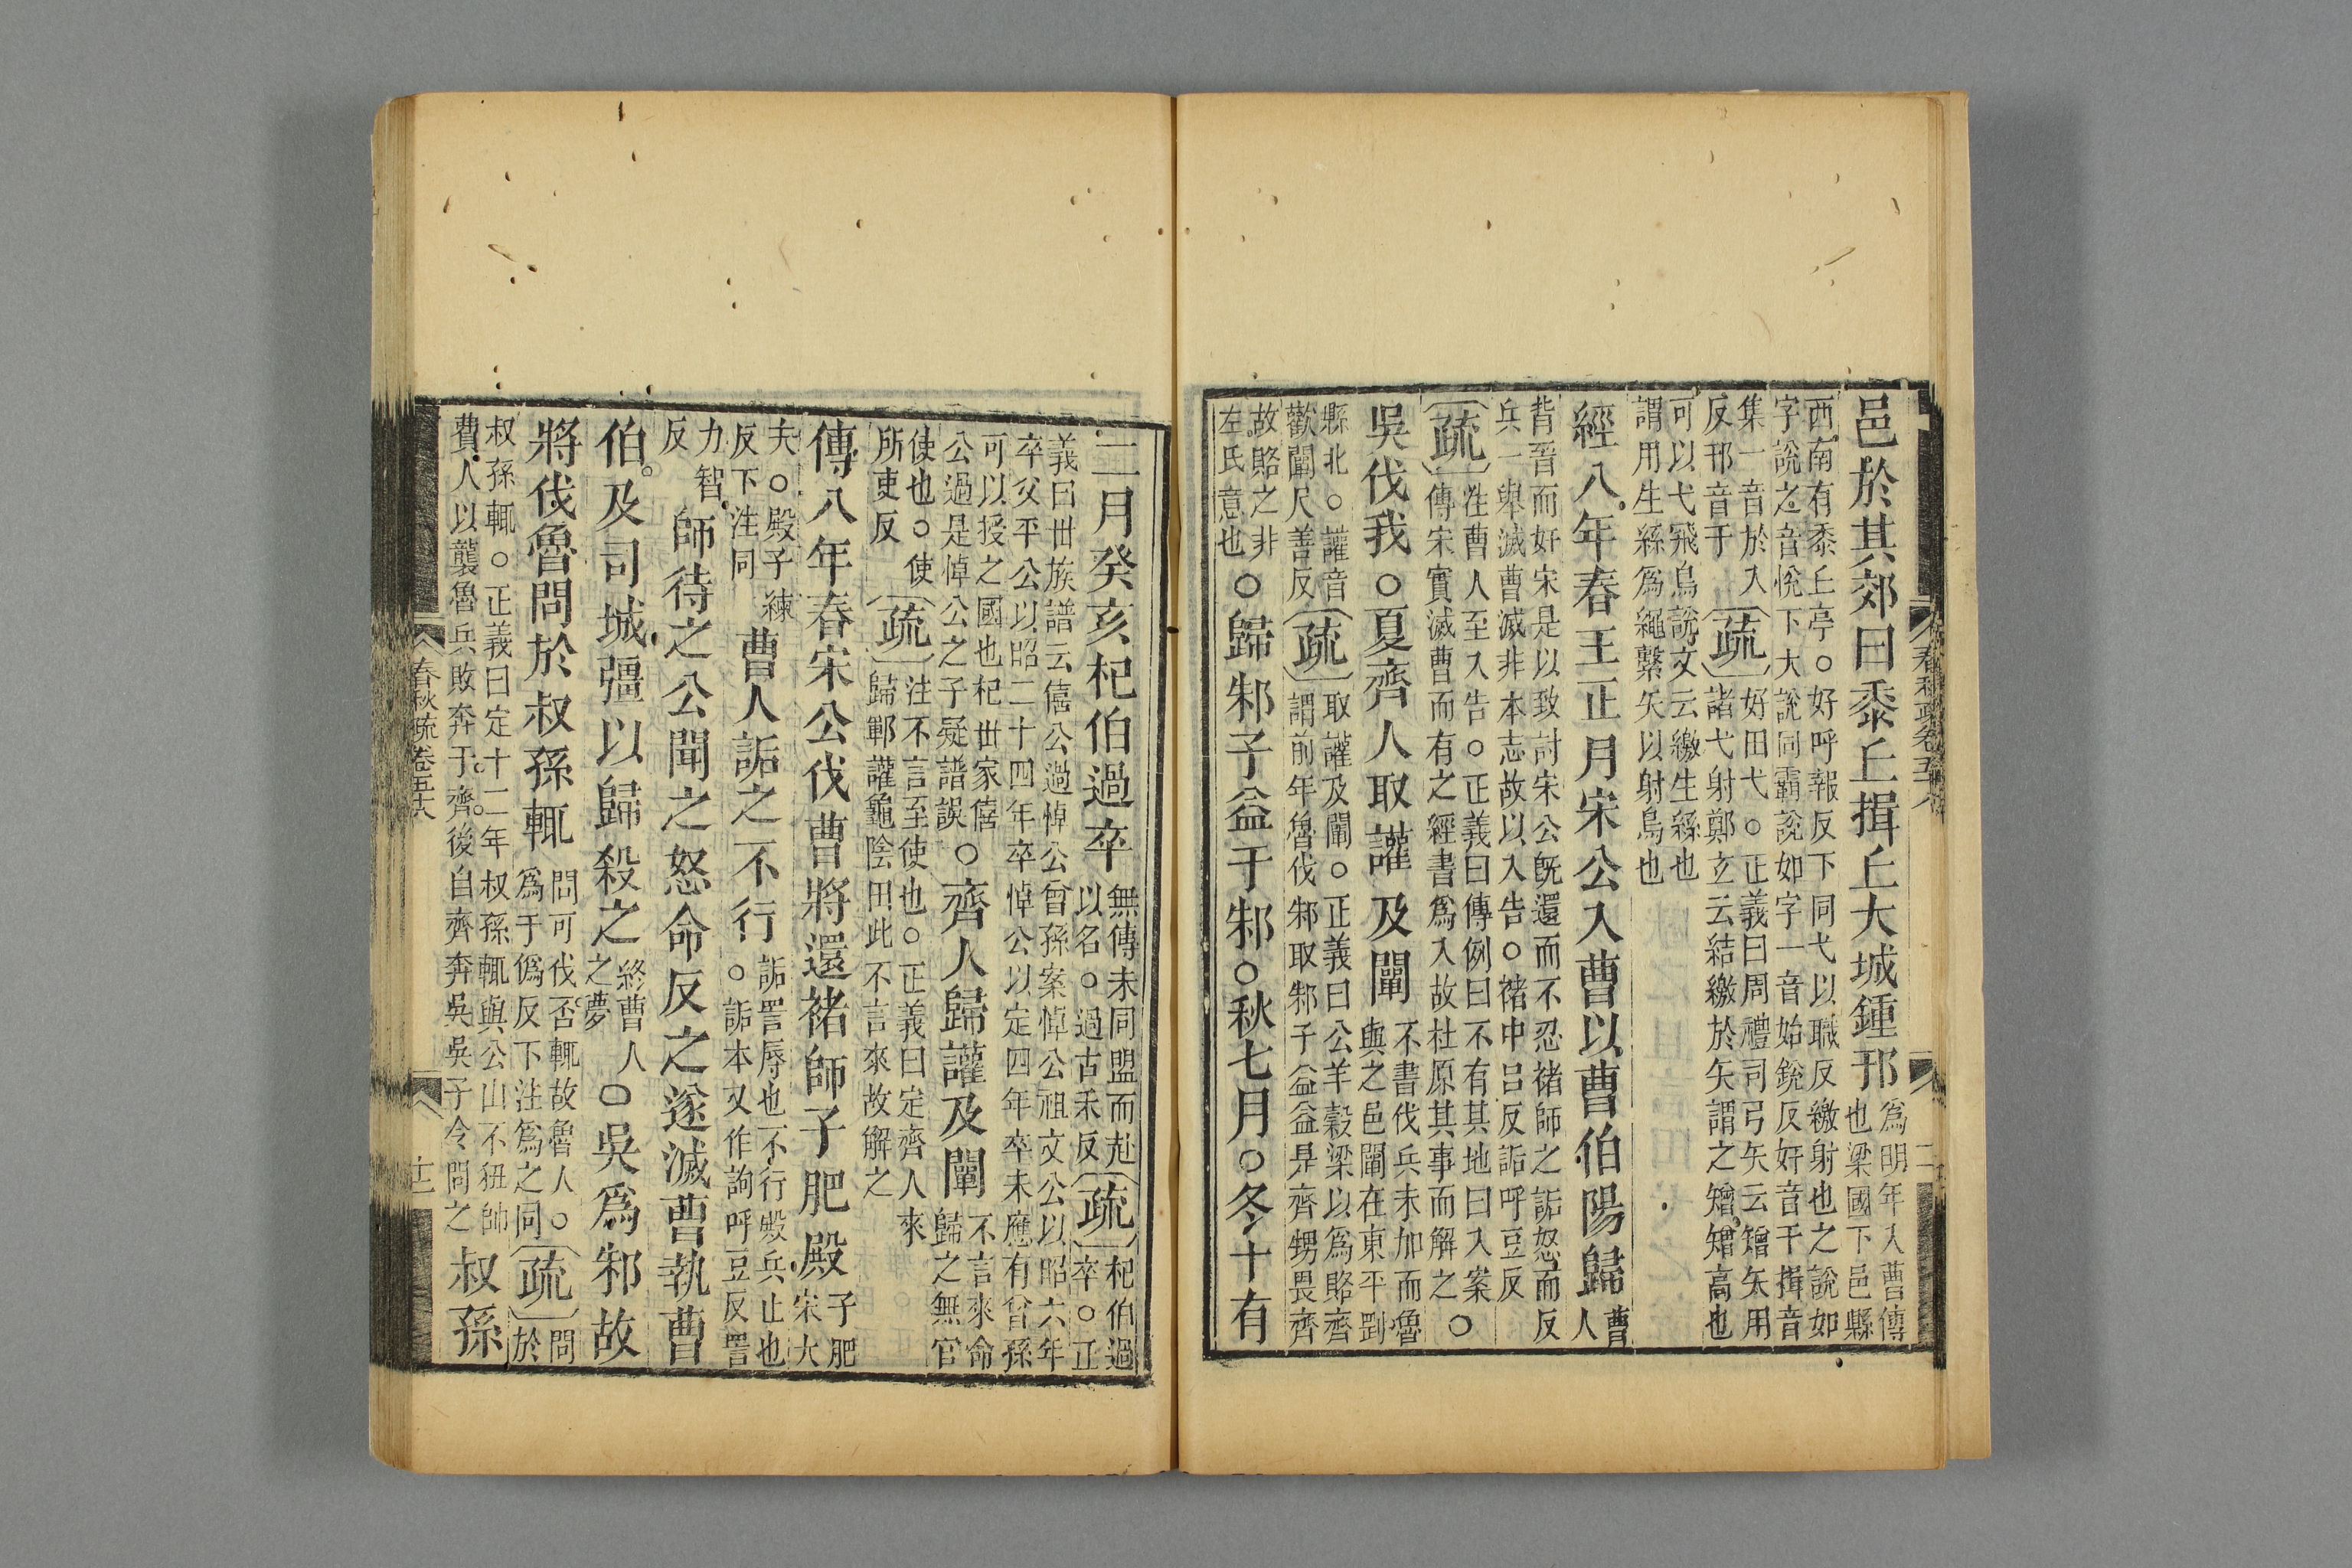 邑於其郊曰黍丘揖丘大城鍾邘爲明年入曹傳也梁國下邑縣
西南有黍丘亭○好呼報反下同弋以職反繳射也之說如
字說之音悅下大說同霸說如字一音始銳反好音干揖音
集一音於入反邘音于疏好田弋○正義曰周禮司弓矢云矰矢用
諸弋射鄭玄云結繳於矢謂之矰矰高也
可以弋飛鳥說文云繳生絲也
謂用生絲爲繩繫矢以射鳥也
經八年春王正月宋公入曹以曹伯陽歸曹人
背晉而奸宋是以致討宋公旣還而不忍褚師之詬怒而反
兵一舉滅曹滅非本志故以入告○褚中呂反詬呼豆反
疏注曹人至入告○正義曰傳例曰不有其地曰入案
傳宋實滅曹而有之經書爲入故杜原其事而解之○
吳伐我○夏齊人取讙及闡不書伐兵未加而魯與之邑闡在東平剛
縣北○讙音歡闡尺善反疏取讙及闡○正義曰公羊穀梁以爲賂齊
謂前年魯伐邾取邾子益益是齊甥畏齊
故賂之非左氏意也○歸邾子益于邾○秋七月○冬十有
二月癸亥杞伯過卒無傳未同盟而赴以名○過古禾反疏杞伯過卒○正
義曰世族譜云僖公過悼公曾孫案悼公祖文公以昭六年
卒父平公以昭二十四年卒悼公以定四年卒未應有曾孫
可以授之國也杞世家僖公過是悼公之子疑譜誤○齊人歸讙及闡不言來命歸之無官
使也○使所吏反疏注不言至使也○正義曰定齊人來
歸鄆讙龜陰田此不言來故解之
傳八年春宋公伐曹將還褚師子肥殿子肥宋大
夫○殿子練反下注同曹人詬之不行詬詈辱也不行殿兵止也○詬本又作訽呼豆反詈
力智反師待之公聞之怒命反之遂滅曹執曹
伯及司城彊以歸殺之終曹人之夢○吳爲邾故
將伐魯問於叔孫輒問可伐否輒故魯人○爲于僞反下注爲之同疏問於
叔孫輒○正義曰定十二年叔孫輒與公山不狃帥
費人以襲魯兵敗奔于齊後自齊奔吳吳子令問之叔孫
春秋疏卷五十八
春秋疏卷五十八
十二